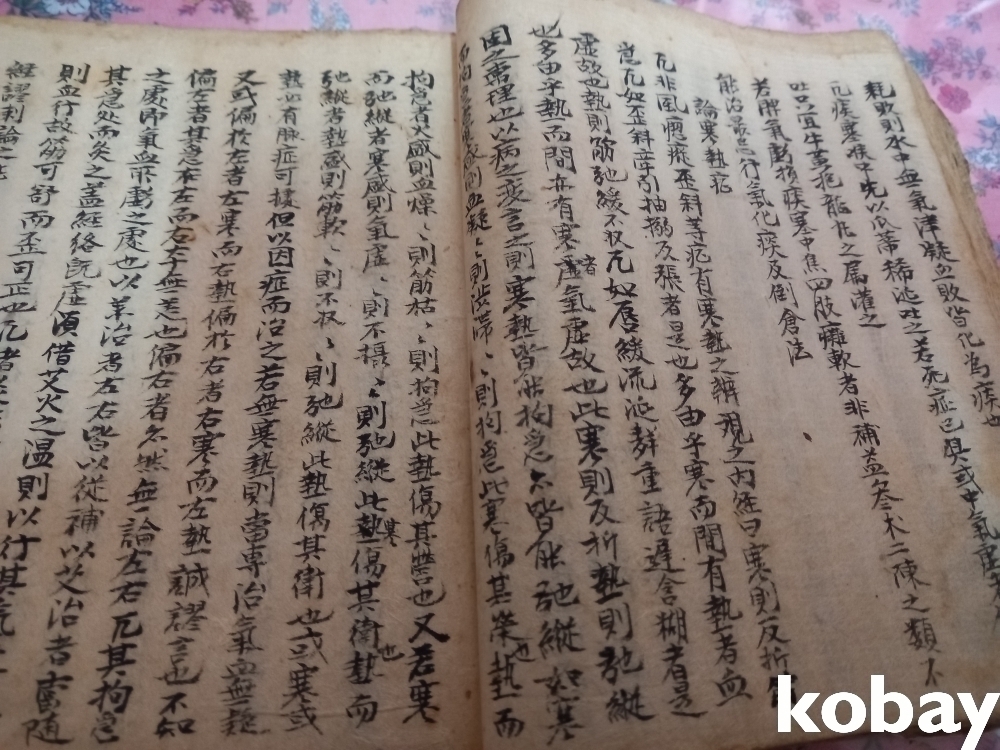 耗敗則水中無氣津凝血敗皆化為痰也
凡痰壅候中先以瓜蒂稀涎吐之若死症已具或中氣虛
吐只宜牛黃抱龍化之屬灌之
若脾氣虧損痰塞中焦四肢癱軟者非補益參木二陳之類不
能治最忌行氣化痰及倒倉法
論寒熱症
凡非風瘛瘲歪斜等症有寒熱之辨現之內經曰寒則反折
忽凡如歪斜牽引抽搦反張者是也多由乎寒而間有熱者血
虛故也熱則筋弛緩不收凡如唇緩流涎聲重語遲含糊者是
也多由乎熱而間亦有寒者虛氣虛故也此寒則反折熱則弛縱
固之常理也以病之变言之則寒熱皆能拘急亦皆能弛縱如寒
而拘急者寒盛則血凝〻則澁滯〻則拘急此寒傷其榮也熱而
拘急者火盛則血燥〻則筋枯〻則拘急此熱傷其營也又若寒
而弛縱者寒盛則氣虛〻則不攝〻則弛縱此熱寒傷其衛也熱而
弛縱者熱盛則筋軟〻則不收〻則弛縱此熱傷其衛也或寒或
熱必有脉症可據但以因症而治之若無寒熱則當專治氣血無疑
又或偏於左者左寒而右熱偏於右者右寒而左熱誠謬言也不知
偏左者其急在左而右本無恙也偏右者亦然無論左右凡其拘急
之處即氣血所虧之處也以藥治者左右皆以從補以艾治者當隨
其急处而灸之盖經絡既虛須借艾火之温則以行其氣
則血行故筋可舒而歪可正也凡者
經謬刺論